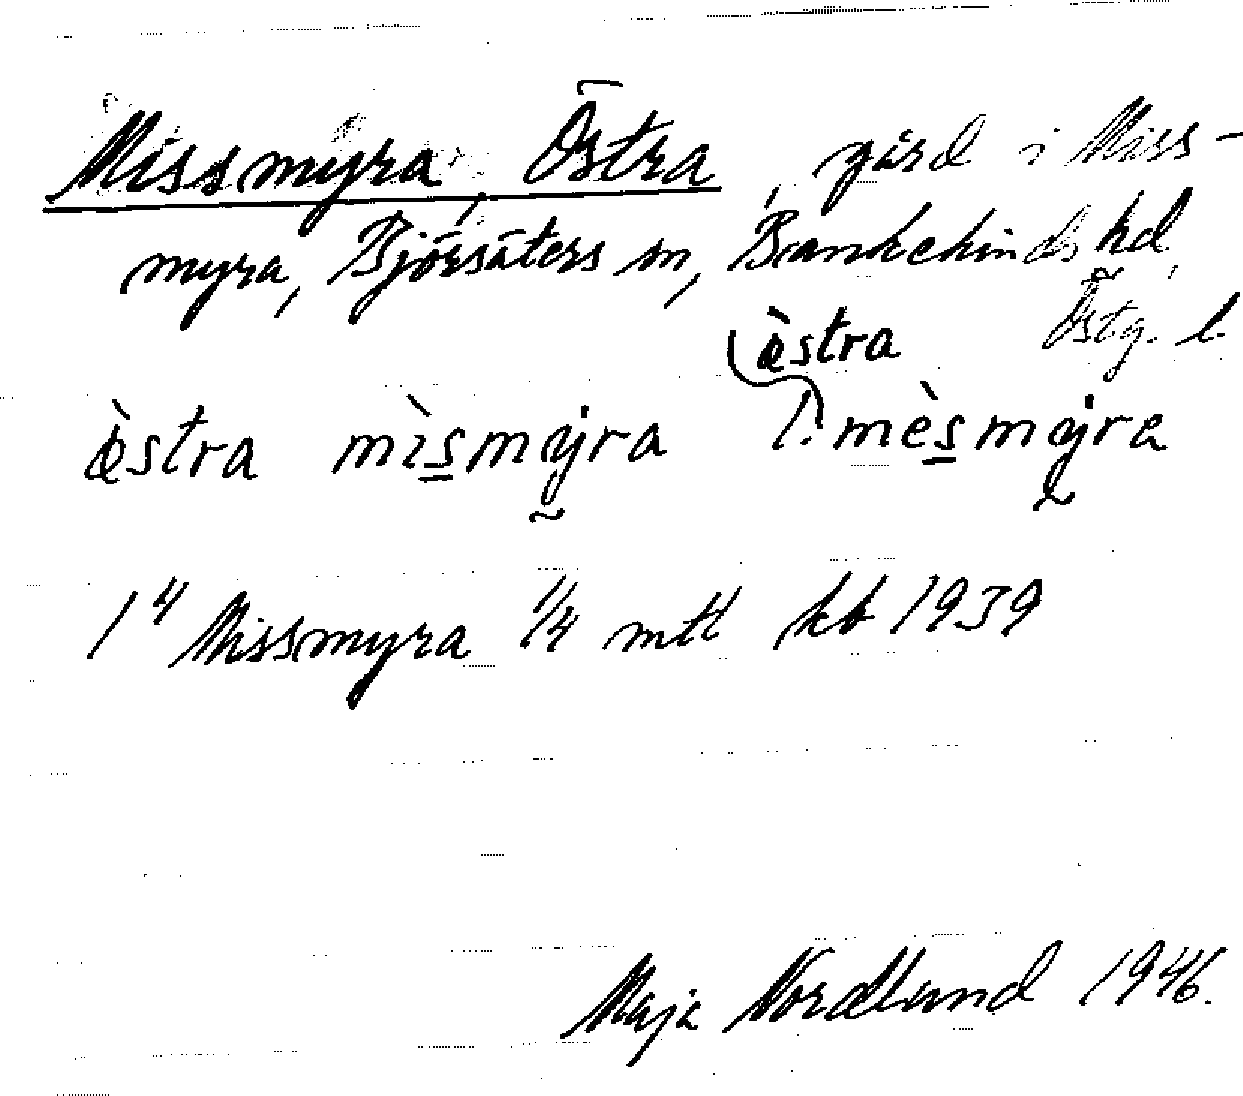 Missmyra, Östra, gård i Miss-
myra, Björsäters sn, Bankekinds hd,
Östg. l.
östra
östra mìsmyra l. mèsmyra
1⁴ Missmyra 1/4 mtl kb 1939
Maja Nordlund 1946.